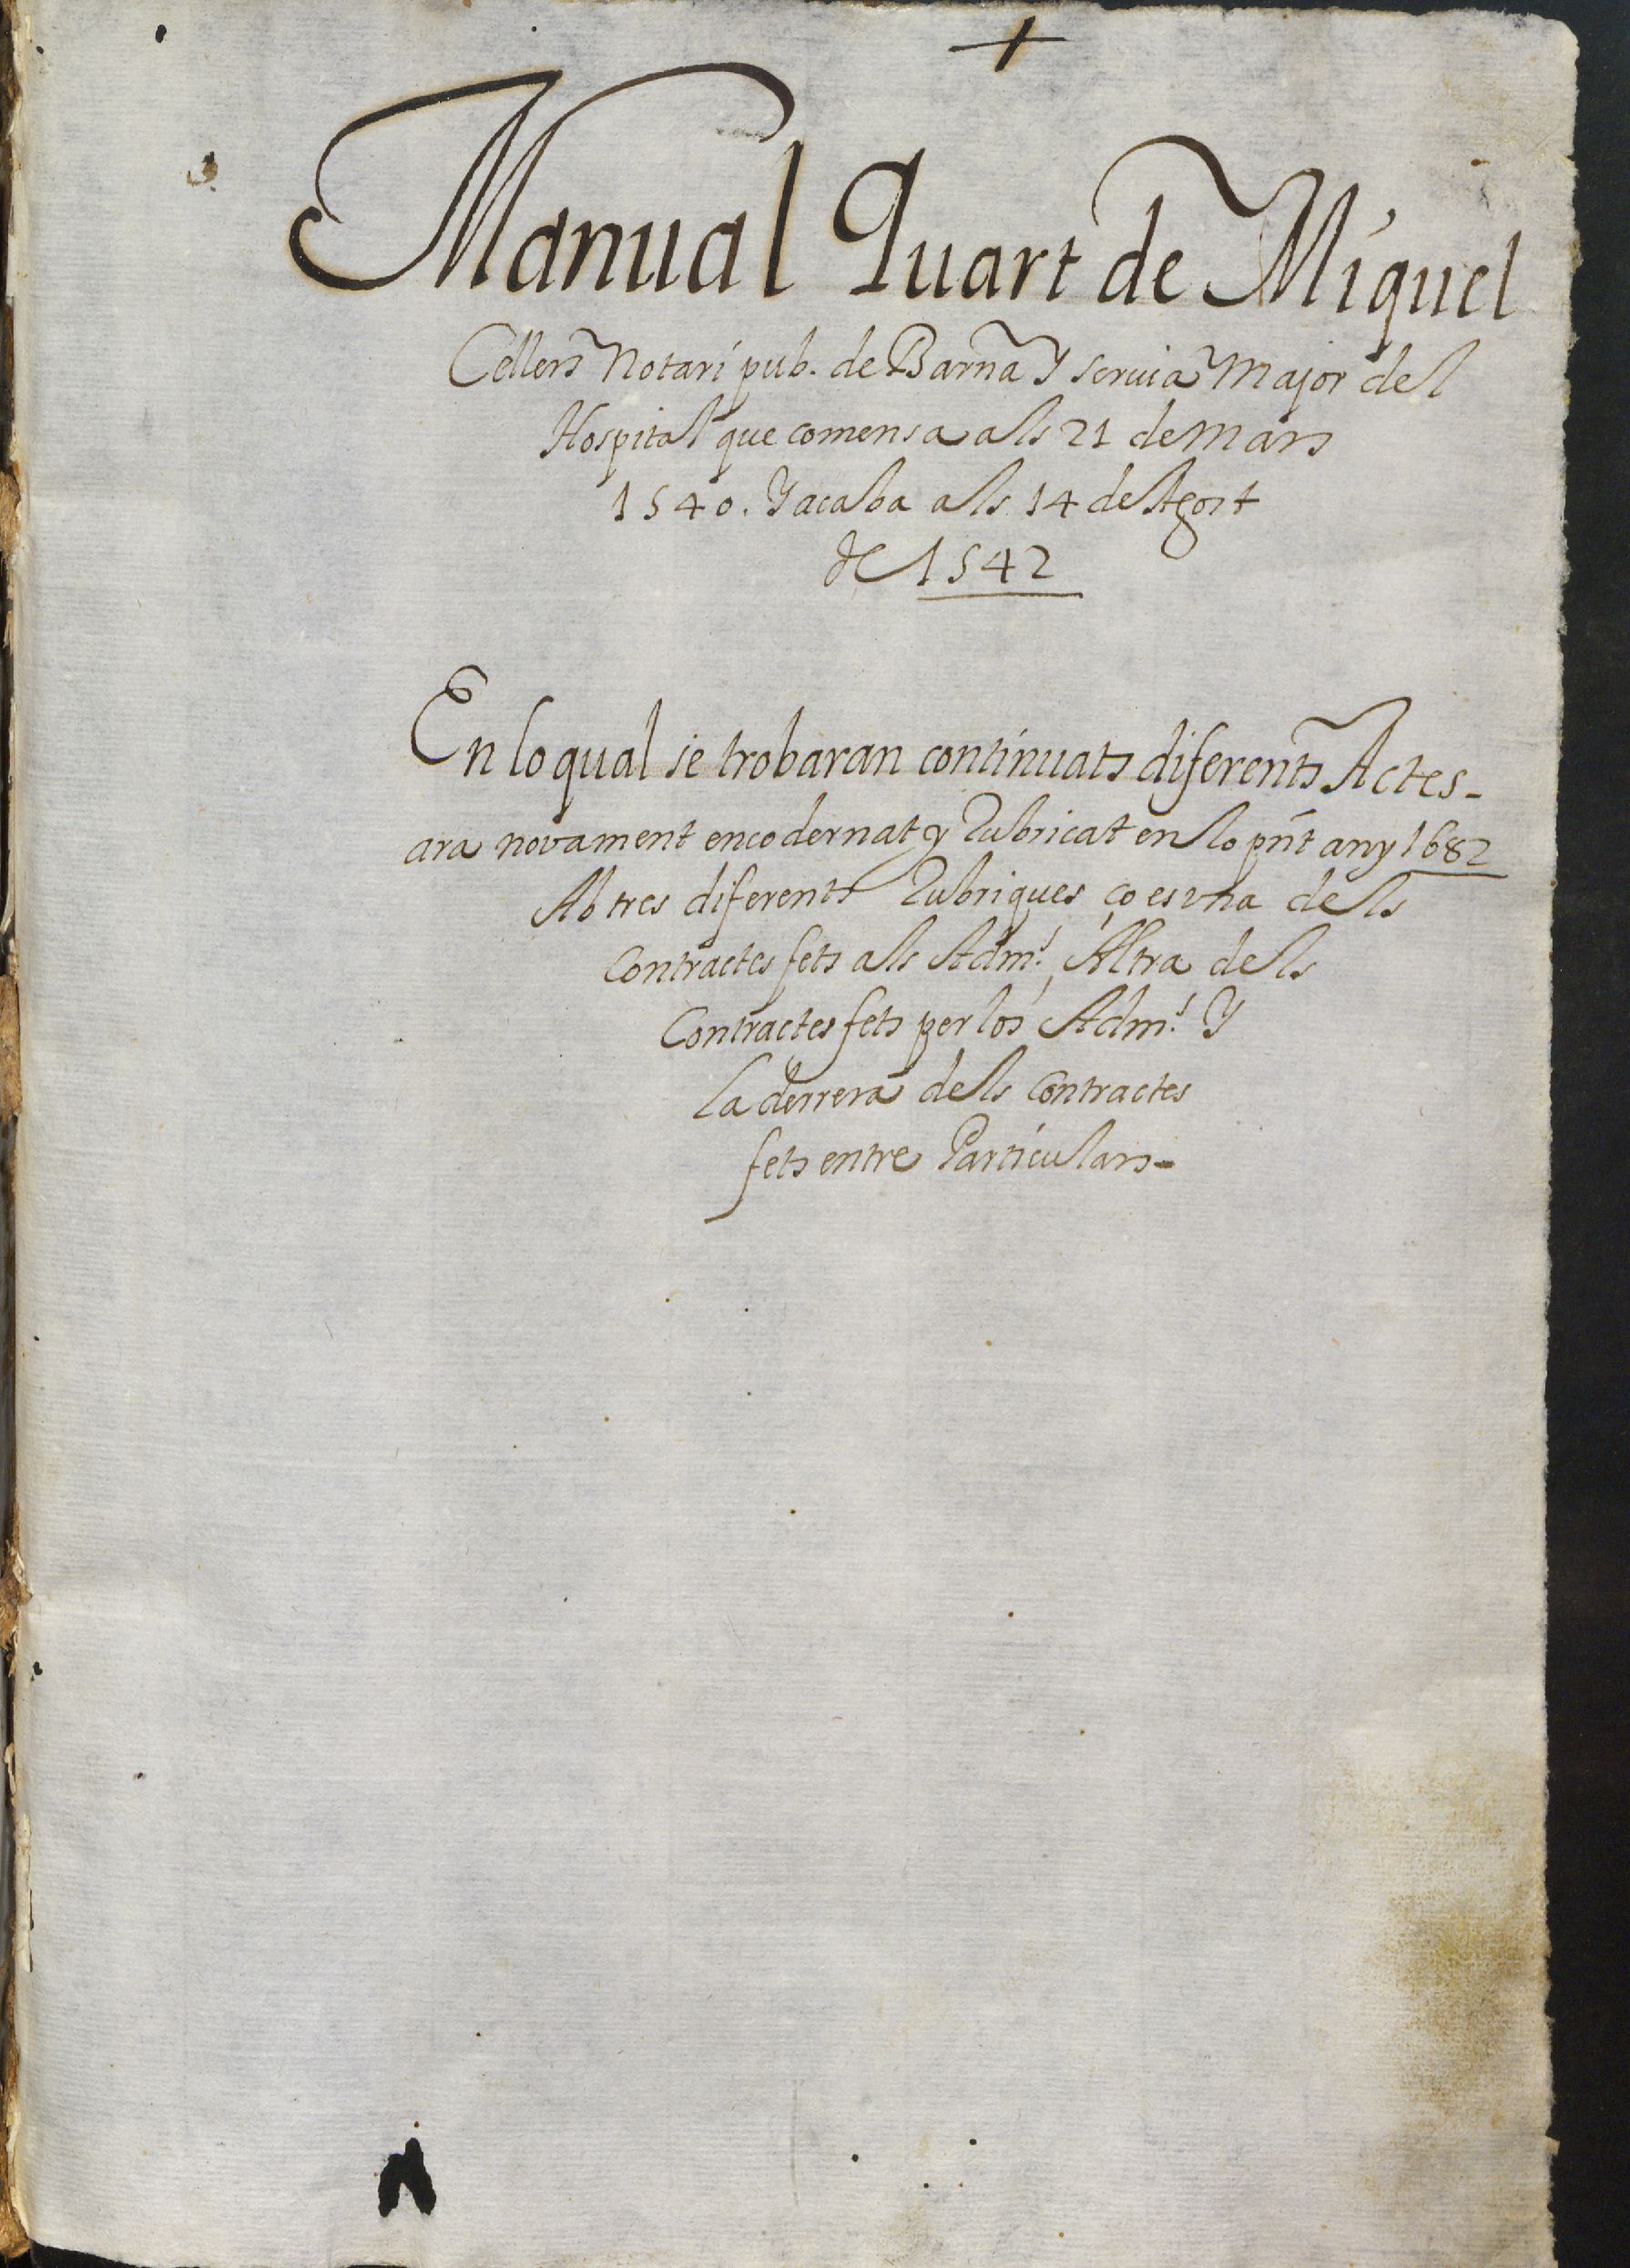 +
Manual Quart de Miquel
Cellers Notari pub. de Barna Y scriuia Major del
Hospital que comensa als 21 de Mars
1540. Y acaba als 14 de Agost
de 1542
En lo qual se trobaran continuats diferents Actes-
ara novament encodernat y Rubricat en lo pñt any 1682
Ab tres diferents Rubriques ço es vna dels
Contractes fets als Adm.ʳˢ Altra dels
Contractes fets per los Adm.ʳˢ Y
La derrera dels Contractes
fets entre Particulars-